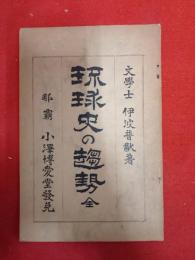 文學士 伊波普猷著
琉球史の趨勢 全
那霸 小澤博愛堂發兌